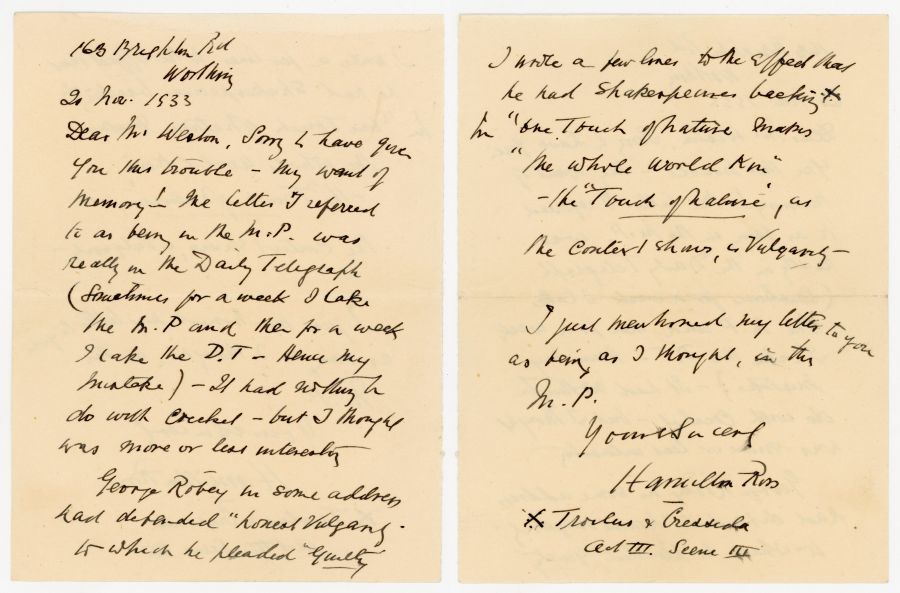 163 Brighton Rd
Worthing
20 Nov. 1933
Dear Mr Weston, Sorry to have given
you this trouble – My want of
memory! – The letter I referred
to as being in the M.P. was
really in the Daily Telegraph
(Sometimes for a week I take
the M.P and then for a week
I take the D.T – Hence my
mistake) – It had nothing to
do with Cricket – but I thought
was more or less interesting
George Robey in some address
had defended "honest Vulgarity"
to which he pleaded "Guilty"
I wrote a few lines to the effect that
he had Shakespeares backing X
for "one Touch of nature makes
"the whole world Kin"
– the "Touch of nature", as
the context shows, is Vulgarity –
I just mentioned my letter to you
as being as I thought, in the
M.P.
Yours Sincerely
Hamilton Ross
X Troilus & Cressida
Act III. Scene III